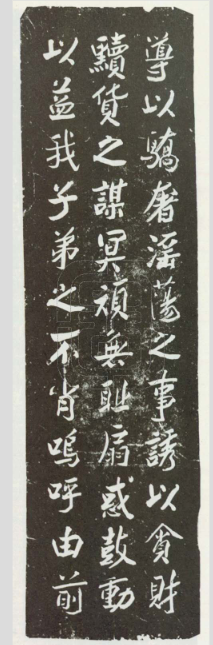 導以驕奢滛蕩之事誘以貪財
黷貨之謀冥頑無耻扇惑鼓動
以益我子弟之不肖嗚呼由前